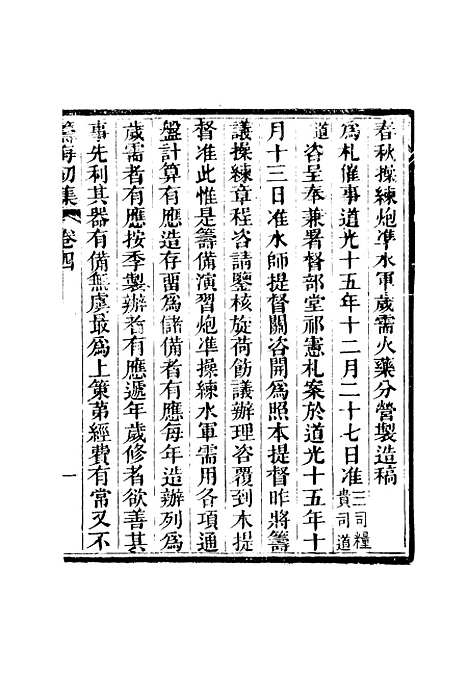 春秋操練炮準水軍歲需火藥分營製造稿
為札催事道光十五年十二月二十七日准三司糧貴司道
道咨呈奉兼署督部堂祁憲札案於道光十五年十
月十三日准水師提督關咨開為照本提督昨將籌
議操練章程咨請鑒核旋荷飭議辦理咨覆到本提
督准此惟是籌備演習炮準操練水軍需用各項通
盤計算有應造存畱為儲備者有應每年造辦列為
歲需者有應按季製辦者有應遞年歲修者欲善其
事先利其器有備無虞最為上策第經費有常又不
籌海初集 卷四 一